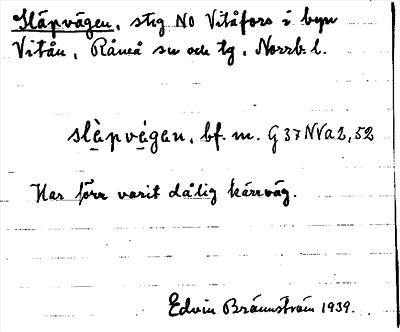 Släpvägen, stig NO Vitåfors i byn
Vitån, Råneå sn och tg, Norrb. l.
slàpvä̀gen, bf. m. G 37 NVa 2, 52
Har förr varit dålig kärrväg.
Edvin Brännström 1939.